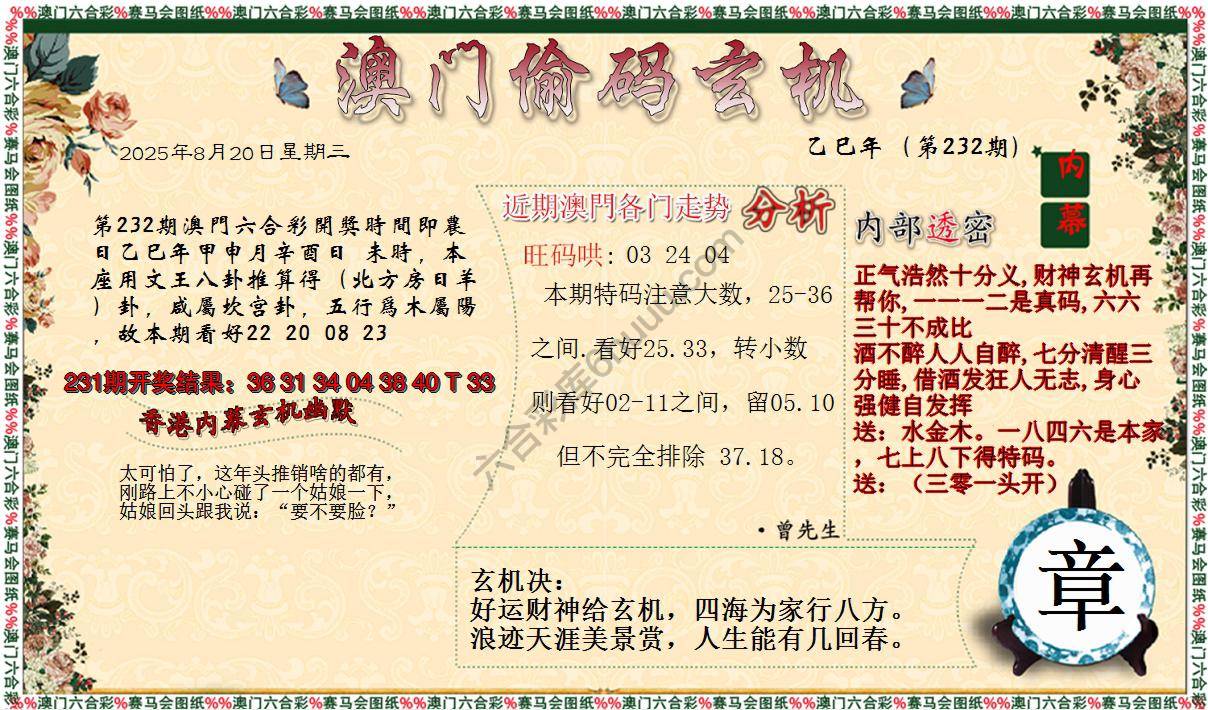 %%澳门六合彩%赛马会图纸%%澳门六合彩%赛马会图纸%%澳门六合彩%赛马会图纸%%澳门六合彩%赛马会图纸%%澳门六合彩%赛马会图纸%%澳门六合彩%赛马会图纸%%
澳门偷码玄机
2025年8月20日星期三
乙巳年（第232期）
内幕
第232期澳門六合彩開獎時間即農
日乙巳年甲申月辛酉日 未時，本
座用文王八卦推算得（北方房日羊
）卦，咸屬坎宫卦，五行爲木屬陽
，故本期看好22 20 08 23
231期开奖结果：36 31 34 04 38 40 T 33
香港内幕玄机幽默
太可怕了，这年头推销啥的都有，
刚路上不小心碰了一个姑娘一下，
姑娘回头跟我说：“要不要脸？”
近期澳門各门走势 分析
旺码哄：03 24 04
本期特码注意大数，25-36
之间.看好25.33，转小数
则看好02-11之间，留05.10
但不完全排除 37.18。
·曾先生
内部透密
正气浩然十分义,财神玄机再
帮你,一一一二是真码,六六
三十不成比
酒不醉人人自醉,七分清醒三
分睡,借酒发狂人无志,身心
强健自发挥
送：水金木。一八四六是本家
，七上八下得特码。
送：（三零一头开）
玄机决：
好运财神给玄机，四海为家行八方。
浪迹天涯美景赏，人生能有几回春。
章
%%澳门六合彩%赛马会图纸%%澳门六合彩%赛马会图纸%%澳门六合彩%赛马会图纸%%澳门六合彩%赛马会图纸%%澳门六合彩%赛马会图纸%%澳门六合彩%赛马会图纸%%